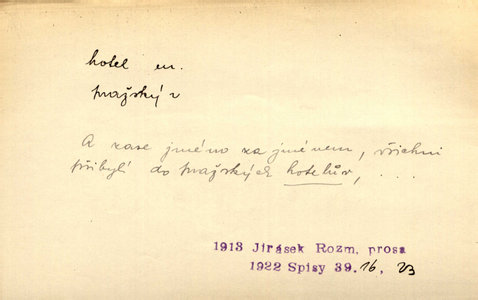 hotel m.
pražský
A zase jméno za jménem, všichni
přibylí do pražských hotelův, ...
1913 Jirásek Rozm. prosa
1922 Spisy 39. 16, 23